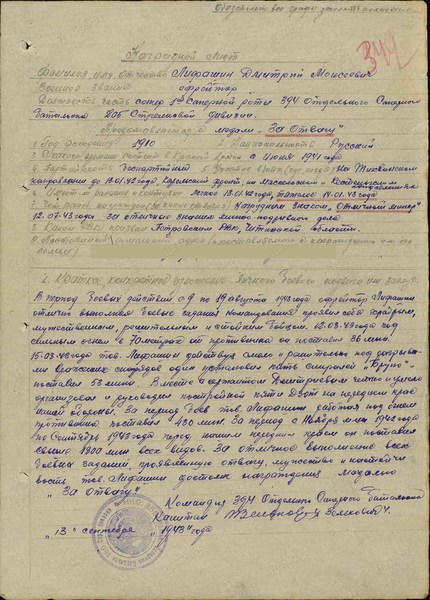 344
Наградной лист
Фамилия, имя, отчество Лифашин Дмитрий Моисеевич
Военное звание ефрейтор
Должность, часть сапер 1ой саперной роты 394 Отдельного Саперного
Батальона 205 Стрелковой Дивизии.
Представляется к медали „За Отвагу"
1. Год рождения 1910 Национальность Русский
Красной Армии с июня 1941 года
Беспартийный На Тихвинском
направлении до 18.01.42 года, Карельский фронт, на Масельском и Кестеньгском направлении
легко 18.01.42 года, 14.01.43 года
Нагрудным знаком „Отличный минер"
12.07.43 года за отличное знание минно-подрывного дела
Каким РВК призван области.
2. Краткое, конкретное изложение личного боевого подвига или заслуг
В период боевых действий с 9 по 19 августа 1943 года ефрейтор Лифашин
отлично выполнял боевые задания командования проявил себя храбрым,
мужественным, решительным и стойким бойцом. 12.08.43 года под
сильным огнем в 70 метрах от противника он поставил 36 мин.
15.08.43 года тов. Лифашин действуя смело и решительно под разрывами
вражеских снарядов один установил пять спиралей „Бруно"
поставил 53 мины. Вместе с сержантом Дмитриевым умело
организовал и руководил постройкой пяти Дзот на переднем крае
нашей обороны. За период боев тов. Лифашин работая под огнем
противника поставил 430 мин. За период с Ноября м-ца 1942 года
по Сентябрь 1943 года перед нашим передним краем он поставил
свыше 1800 мин всех видов. За отличное выполнение всех
боевых заданий, проявленную отвагу, мужество и настойчи
вость тов. Лифашин достоин награждения медалью
„За Отвагу".
Командир 394 Отдельного Саперного Батальона
Капитан
„13" сентября 1943 года